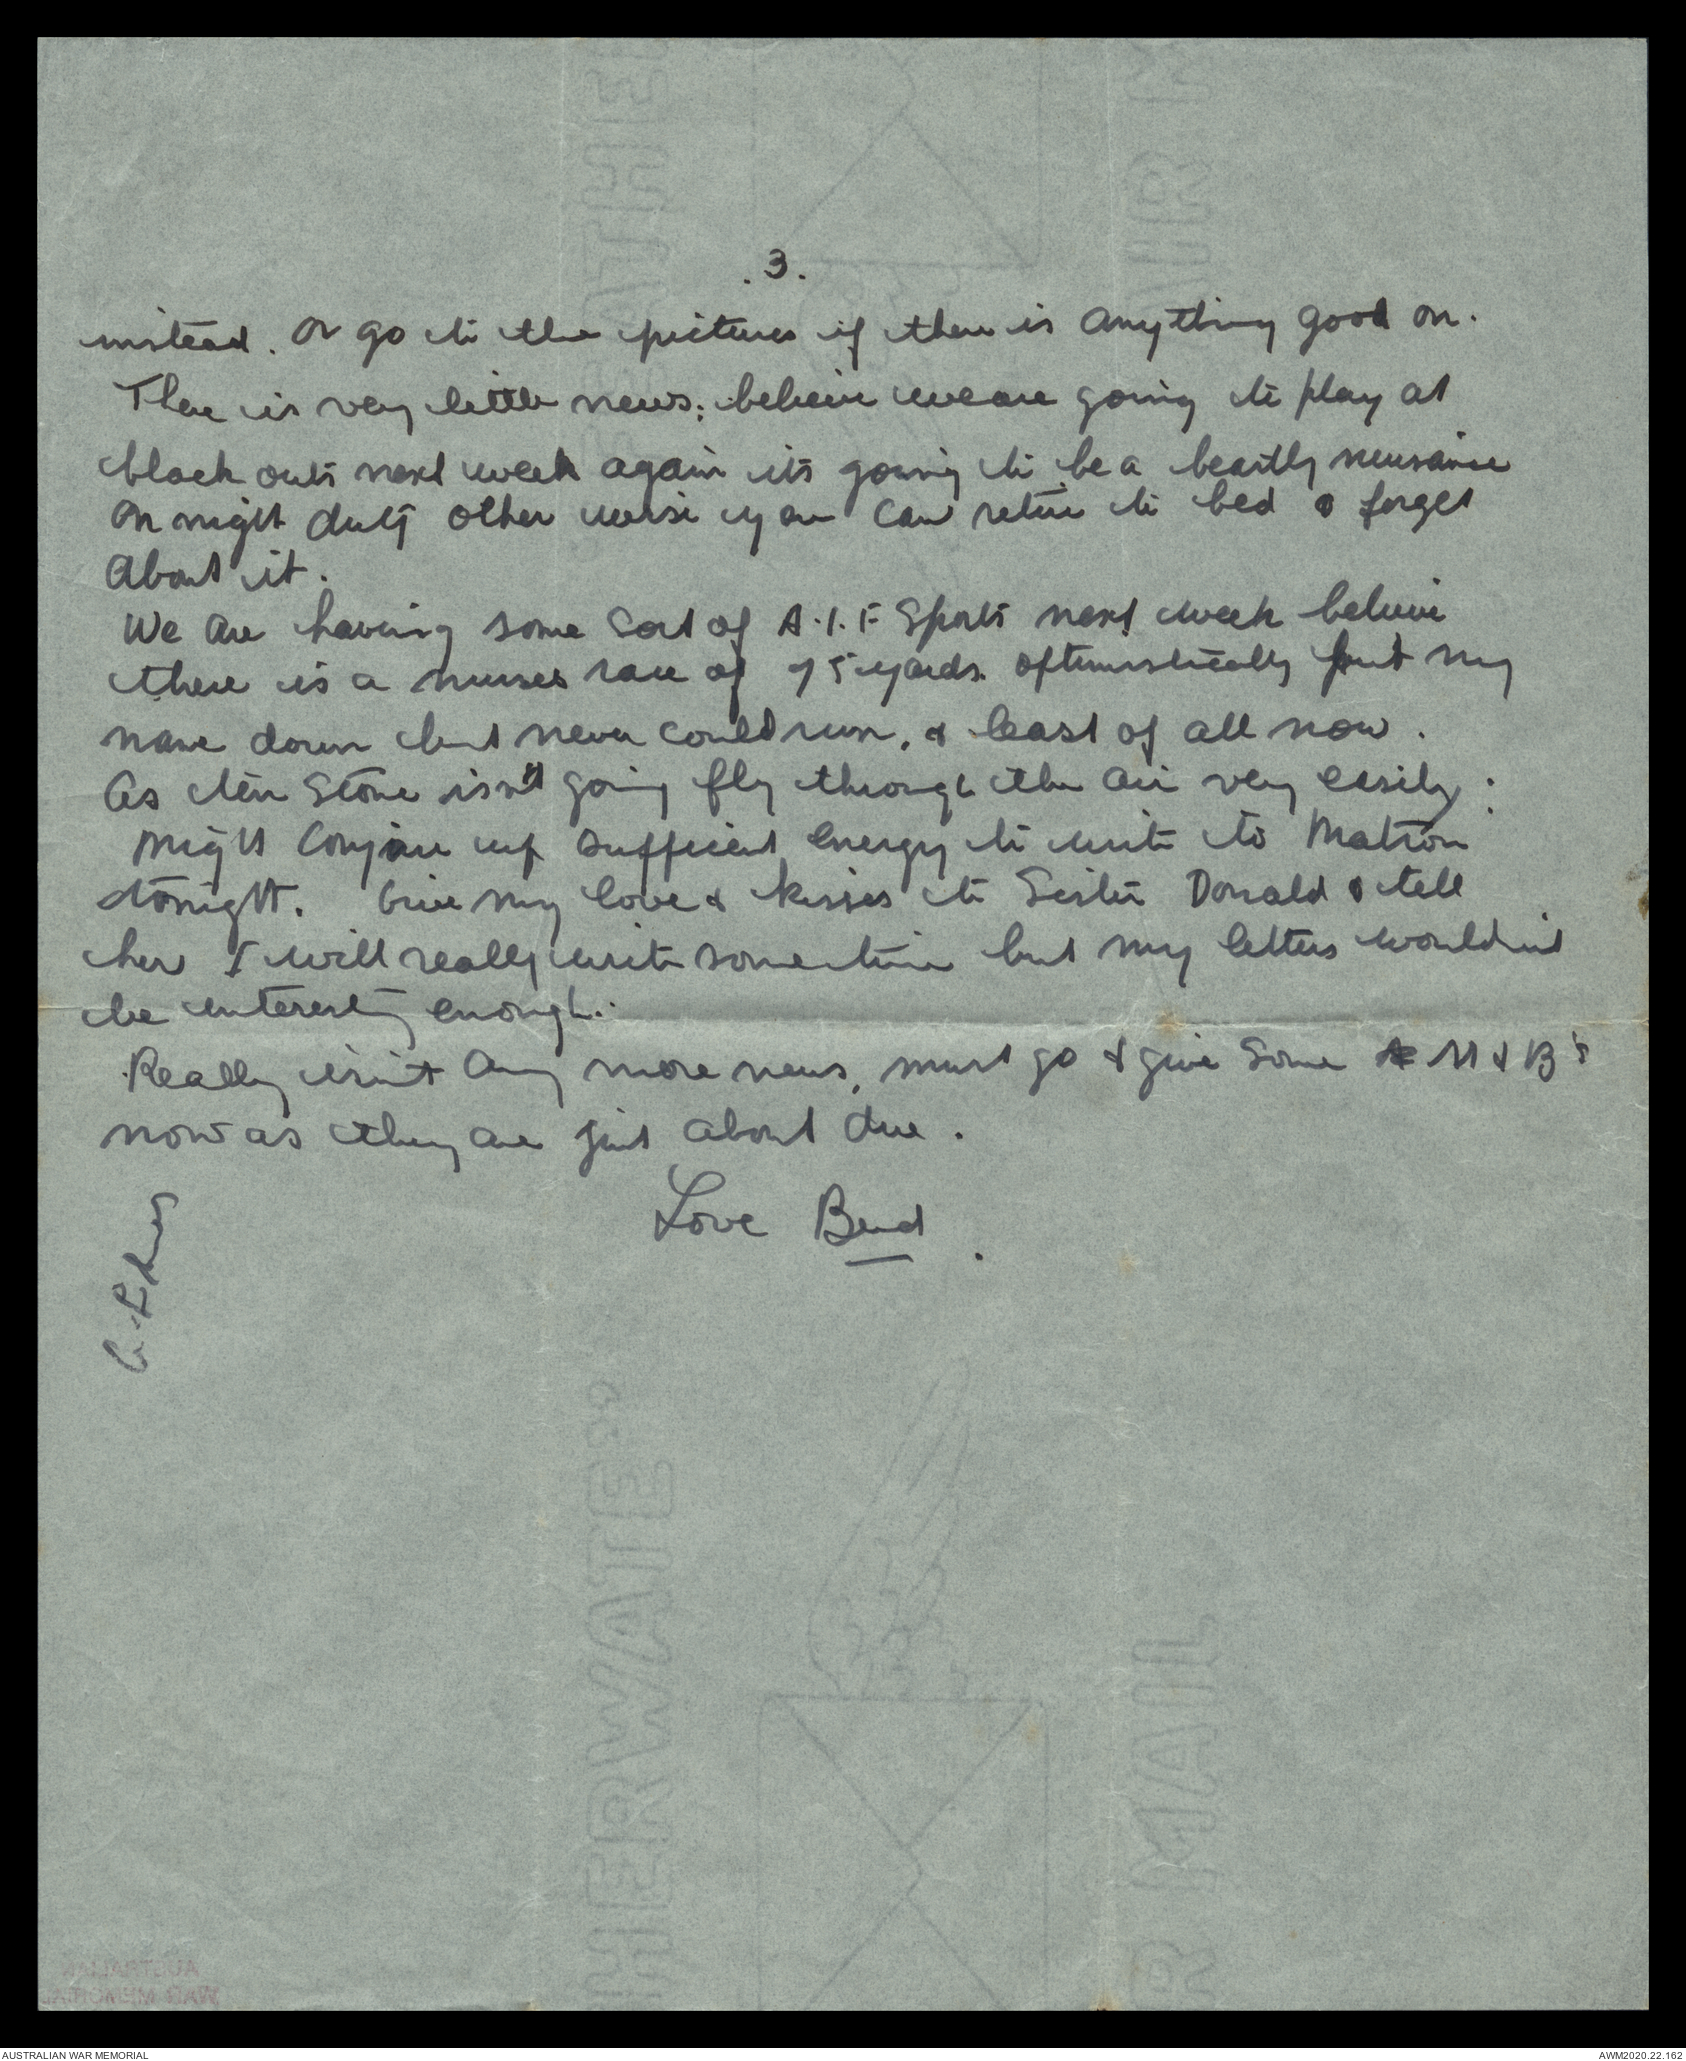 . 3 .
instead. Or go to the pictures if there is anything good on.
There is very little news; believe we are going to play at
black outs next week again its going to be a beastly nuisance
on night duty other wise you can retire to bed & forget
about it.
We are having some sort of A.I.F Sports next week believe
there is a nurses race of 75 yards. optimistically put my
name down but never could run, & least of all now.
As ten stone isn't going fly through the air very easily:
might conjure up sufficient energy to write to Matron
tonight. Give my love & kisses to Sister Donald & tell
her I will really write sometime but my letters wouldn't
be interesting enough.
Really isn't any more news, must go & give some M & B's
now as they are just about due.
Love Beud
AIR MAIL
AUSTRALIAN
WAR MEMORIAL
AUSTRALIAN WAR MEMORIAL
AWM2020.22.162